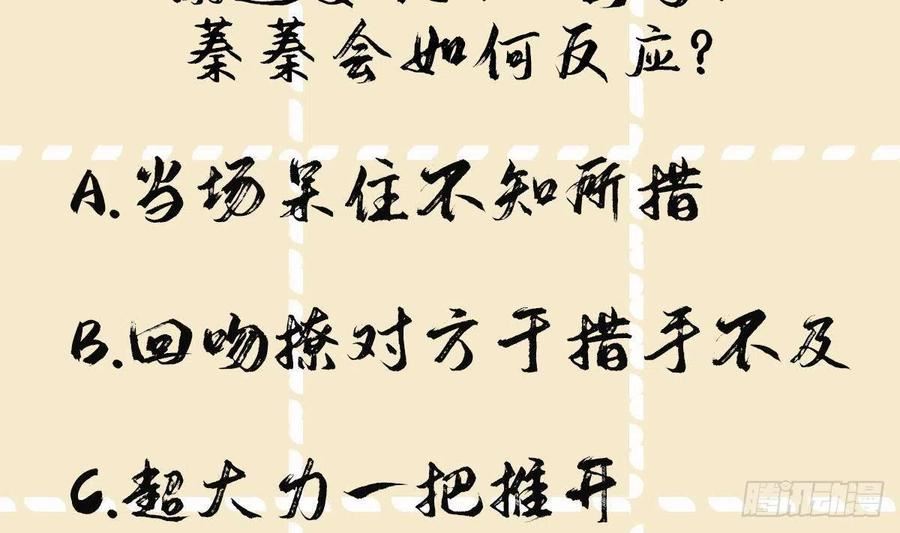 蓁蓁会如何反应?
A.当场呆住不知所措
B.回吻撩对方于措手不及
C.超大力一把推开
腾讯动漫